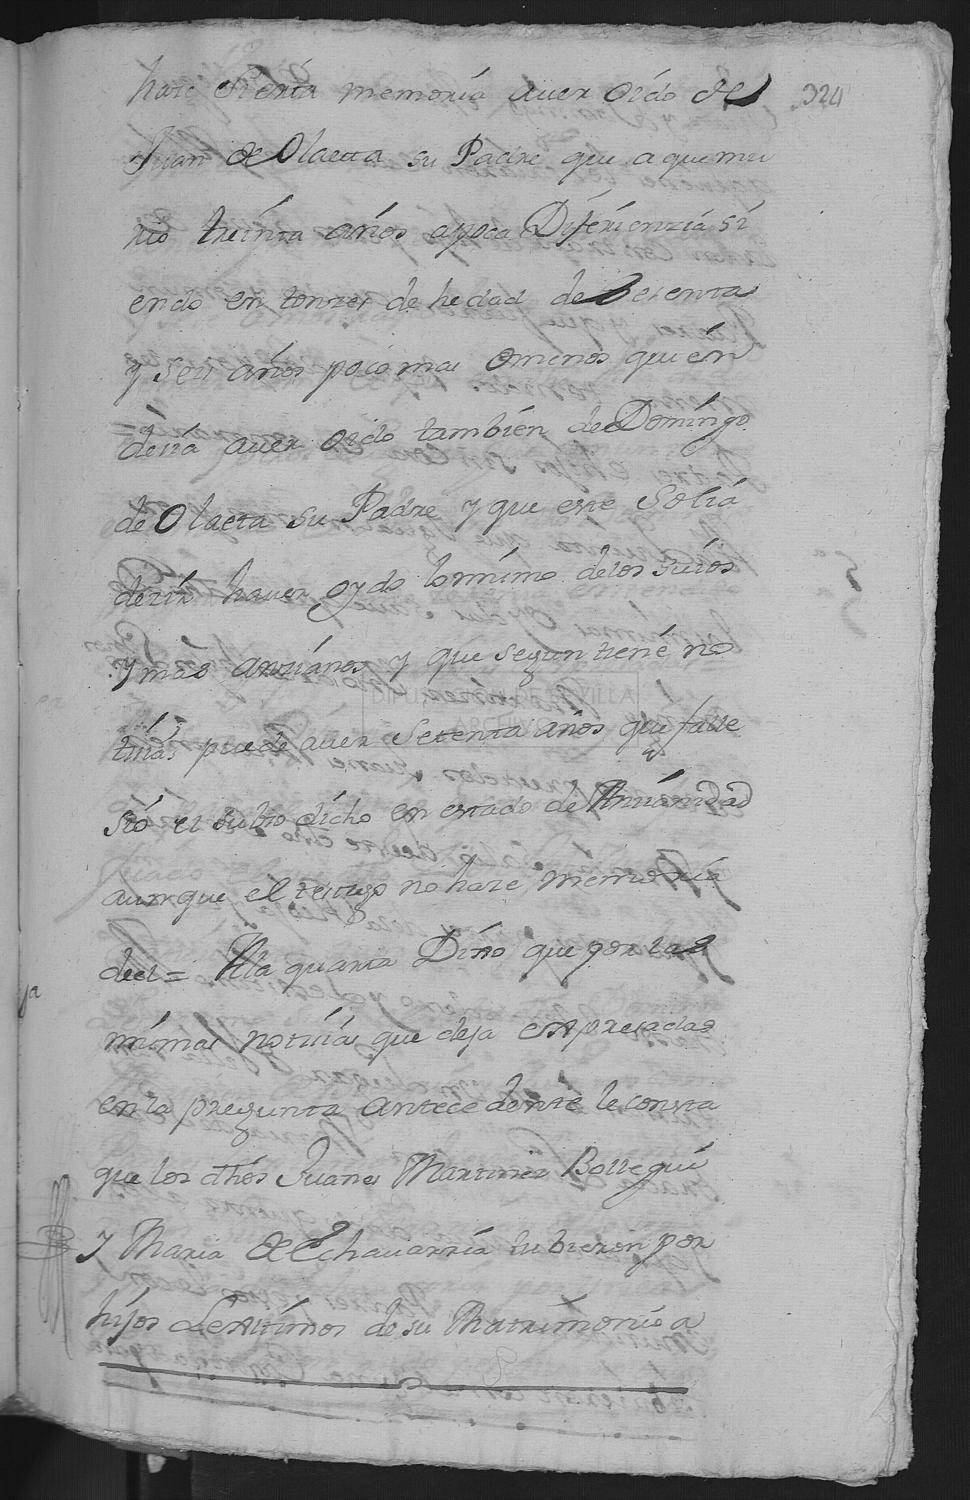 haze Sierta memoria auer oido de 324
Juan de Olaetta su Padre que a que mu
rio treinta años a poca Diferienzia si
endo en tonzes de hedad de Setenta
y seis años poco mas o menos quien
dezia auer oido tambien de Domingo
de Olaeta su Padre y que este Solia
dezir hauer oydo lo mismo de los suios
y mas anzianos y que segun tiene no
tizias puede auer Setenta años que falle
sio el suso dicho en estado de Anzianidad
aunque el testigo no haze memoria
de el = A la quarta Dixo que por las
mismas notizias que deja expresadas
en la pregunta antecedente le consta
que los dhos Juanes Martinez Bollegui
y Maria de Echauarria tubieron por
hijos Lexitimos de su Matrimonio a
DIPU SEVILLA
ARCHIVO